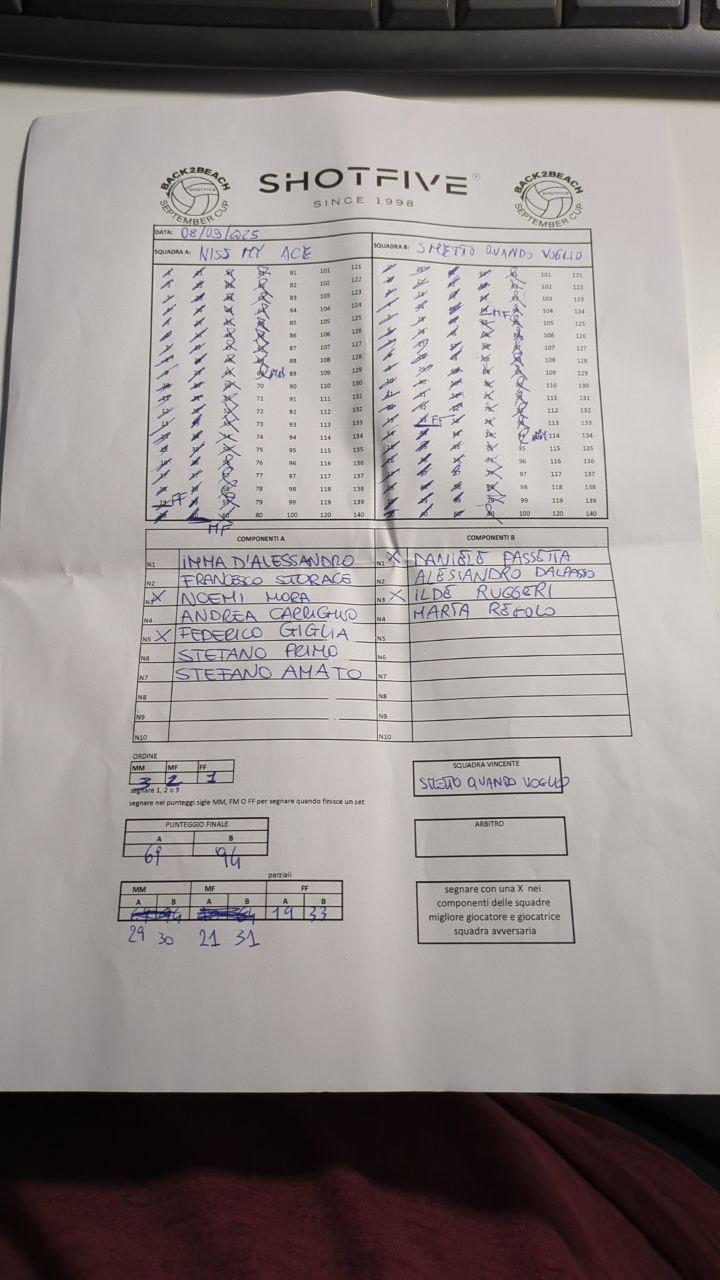 BACK2BEACH
SHOTFIVE
SEPTEMBER CUP
SHOTFIVE®
SINCE 1998
BACK2BEACH
SHOTFIVE
SEPTEMBER CUP
DATA: 08/09/2025
SQUADRA A: NISS MY ACE
SQUADRA B: SMETTO QUANDO VOGLIO
81 101 121
82 102 122
83 103 123
84 104 124
85 105 125
86 106 126
87 107 127
88 108 128
89 109 129
70 90 110 130
71 91 111 131
72 92 112 132
73 93 113 133
74 94 114 134
75 95 115 135
76 96 116 136
77 97 117 137
78 98 118 138
79 99 119 139
80 100 120 140
FF
MF
101 121
102 122
103 123
104 124
MF
105 125
106 126
107 127
108 128
109 129
110 130
111 131
112 132
FF
113 133
114 134
95 115 135
96 116 136
97 117 137
98 118 138
99 119 139
100 120 140
COMPONENTI A
N1 IMMA D'ALESSANDRO
N2 FRANCESCO STORACE
N3 X NOEMI MORA
N4 ANDREA
N5 X FEDERICO GIGLIA
N6 STEFANO PRIMO
N7 STEFANO AMATO
N8
N9
N10
COMPONENTI B
N1 X DANIELE PASSETTA
N2 ALESSANDRO DALPASSO
N3 X ILDE RUGGERI
N4 MARTA REGOLO
N5
N6
N7
N8
N9
N10
ORDINE
MM MF FF
3 2 1
segnare 1, 2 o 3
segnare nei punteggi sigle MM, FM O FF per segnare quando finisce un set
SQUADRA VINCENTE
QUANDO VOGLIO
PUNTEGGIO FINALE
A B
69 94
ARBITRO
parziali
MM MF FF
A B A B A B
19 33
29 30 21 31
segnare con una X nei
componenti delle squadre
migliore giocatore e giocatrice
squadra avversaria